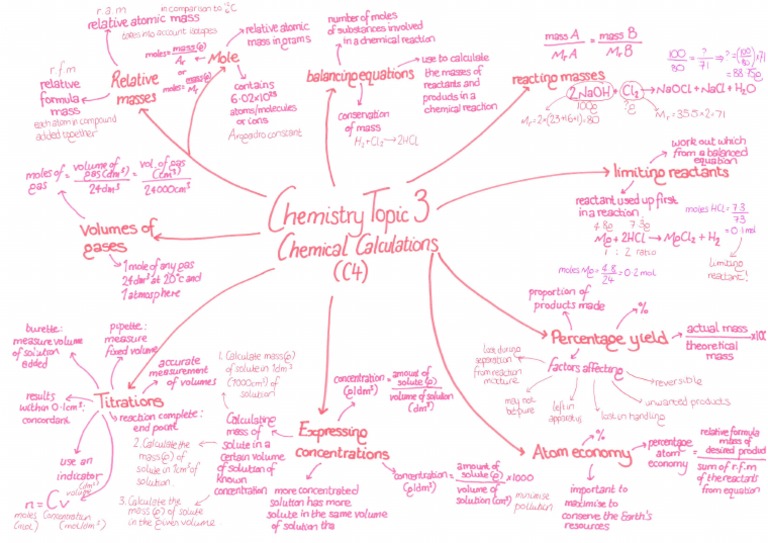 Chemistry Topic 3
Chemical Calculations
(C4)
Relative
masses
r.a.m
in comparison to ¹²C
relative atomic mass
takes into account isotopes
r.f.m
relative
formula
mass
each atom in compound
added together
Mole
relative atomic
mass in grams
moles = mass(g)
Ar
or
moles = mass(g)
Mr
contains
6.02×10²³
atoms/molecules
or ions
Avogadro constant
balancing equations
number of moles
of substances involved
in a chemical reaction
use to calculate
the masses of
reactants and
products in a
chemical reaction
conservation
of mass
H₂+Cl₂→2HCl
reacting masses
mass A = mass B
MrA MrB
100 = ? ⇒ ? = (100/80)×71
80 71
= 88.75g
2NaOH + Cl₂ → NaOCl + NaCl + H₂O
100g ?g
Mr=2×(23+16+1)=80
Mr=35.5×2=71
limiting reactants
work out which
from a balanced
equation
reactant used up first
in a reaction
4.8g 7.3g
Mg+2HCl→MgCl₂+H₂
1 : 2 ratio
moles Mg = 4.8 = 0.2mol
24
moles HCl = 7.3
73
= 0.1mol
limiting
reactant!
Percentage yield
proportion of
products made
%
actual mass ×100
theoretical
mass
factors affecting
lost during
separation
from reaction
mixture
may not
be pure
left in
apparatus
lost in handling
unwanted products
reversible
Atom economy
%
percentage
atom
economy
= relative formula
mass of
desired product
sum of r.f.m
of the reactants
from equation
important to
maximise to
conserve the Earth's
resources
minimise
pollution
Expressing
concentrations
concentration
(g/dm³)
= amount of
solute (g)
volume of solution
(dm³)
concentration
(g/dm³)
= amount of
solute (g) ×1000
volume of
solution (cm³)
more concentrated
solution has more
solute in the same volume
of solution tha
Calculating
mass of
solute in a
certain volume
of solution of
known
concentration
1. Calculate mass(g)
of solute in 1dm³
(1000cm³) of
solution
2. Calculate the
mass (g) of
solute in 1cm³ of
solution.
3. Calculate the
mass (g) of solute
in the given volume.
Titrations
burette:
measure volume
of solution
added
pipette:
measure
fixed volume
accurate
measurement
of volumes
results
within 0.1cm³:
concordant
reaction complete:
end point
use an
indicator
(dm³)
volume
n = Cv
moles concentration
(mol) (mol/dm³)
Volumes of
gases
moles of
gas
= volume of
gas (dm³) = vol. of gas
(cm³)
24dm³ 24000cm³
1 mole of any gas
24dm³ at 20°c and
1 atmosphere